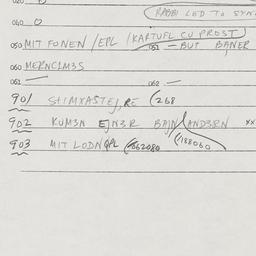 RABBI LED TO SYN
060 O
050 MIT FONEN / EPL / KARTUFL CU PROST
051 — BUT BANER
060 MERNCLM3S
061 — 062 —
901 SHIMXASTEJ, RE (268
902 KUM3N EJN3R BAJN AND3RN xx
903 MIT LODN EPL (062080 (188060